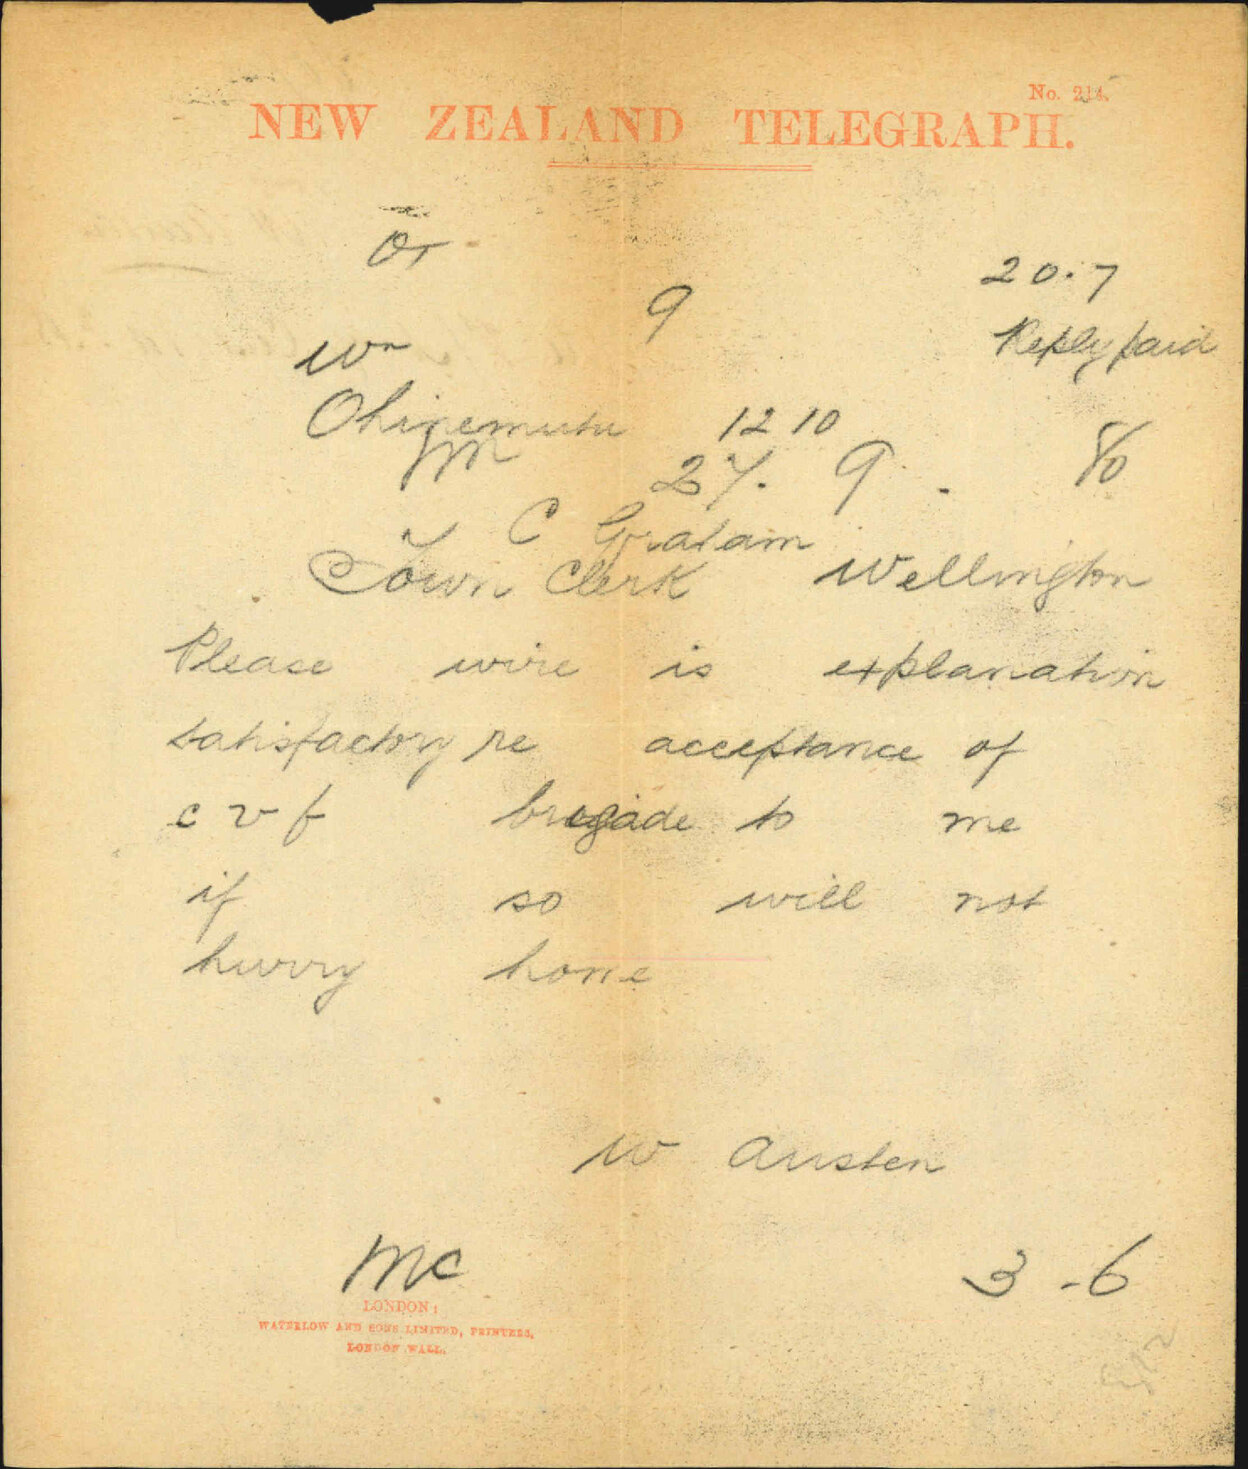 No. 214.
NEW ZEALAND TELEGRAPH.
Or
20.7
9
Reply paid
Wn
Ohinemutu 12 10
27. 9.
C Graham
Town Clerk Wellington
Please wire is explanation
satisfactory re acceptance of
c v f brigade to me
if so will not
hurry home
W Austen
Mc
3-6
LONDON:
WATERLOW AND SONS LIMITED, PRINTERS,
LONDON WALL.